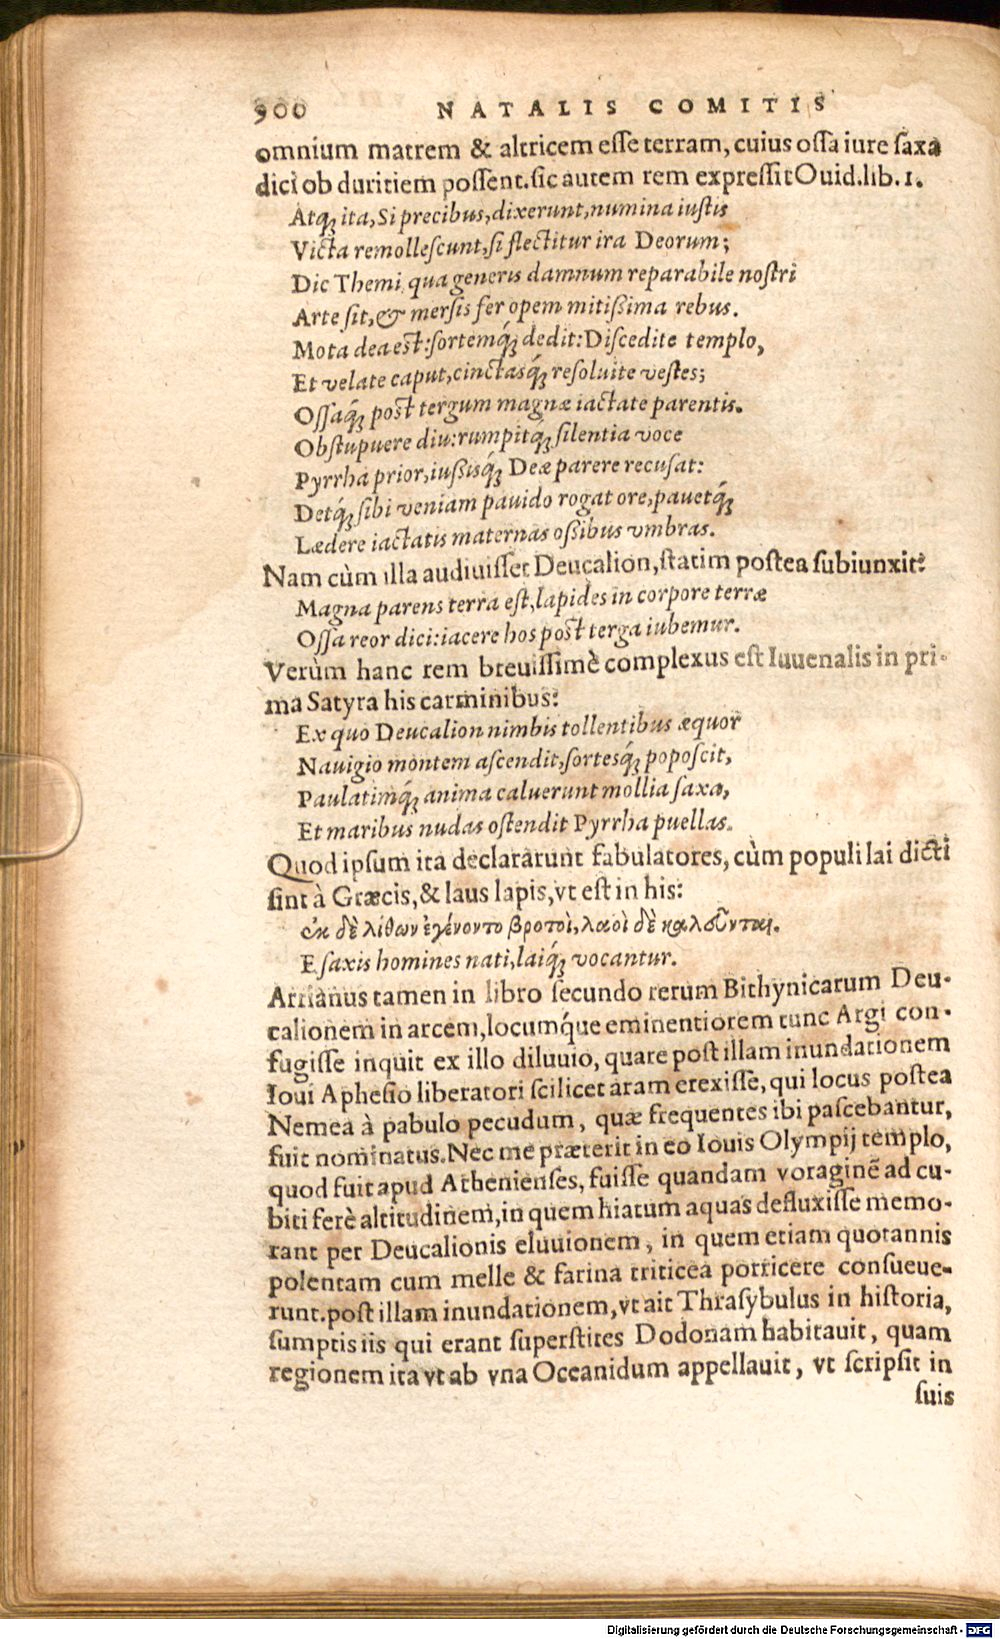 900 NATALIS COMITIS
omnium matrem & altricem esse terram, cuius ossa iure saxa
dici ob duritiem possent. sic autem rem expressit Ouid. lib. 1.
Atq́; ita, Si precibus, dixerunt, numina iustis
Victa remollescunt, si flectitur ira Deorum;
Dic Themi qua generis damnum reparabile nostri
Arte sit, & mersis fer opem mitißima rebus.
Mota dea est: sortemq́; dedit: Discedite templo,
Et velate caput, cinctasq́; resoluite vestes;
Ossaq́; post tergum magnæ iactate parentis.
Obstupuere diu: rumpitq́; silentia voce
Pyrrha prior, iußisq́; Deæ parere recusat:
Detq́; sibi veniam pauido rogat ore, pauetq́;
Lædere iactatis maternas oßibus vmbras.
Nam cùm illa audiuisset Deucalion, statim postea subiunxit:
Magna parens terra est, lapides in corpore terræ
Ossa reor dici: iacere hos post terga iubemur.
Verùm hanc rem breuissimè complexus est Iuuenalis in pri-
ma Satyra his carminibus:
Ex quo Deucalion nimbis tollentibus æquor
Nauigio montem ascendit, sortesq́; poposcit,
Paulatimq́; anima caluerunt mollia saxa,
Et maribus nudas ostendit Pyrrha puellas.
Quod ipsum ita declararunt fabulatores, cùm populi lai dicti
sint à Græcis, & laus lapis, vt est in his:
ἐκ δὲ λίθων ἐγένοντο βροτοὶ, λαοὶ δὲ καλοῦνται.
E saxis homines nati, laiq́; vocantur.
Arrianus tamen in libro secundo rerum Bithynicarum Deu-
calionem in arcem, locumq́ue eminentiorem tunc Argi con-
fugisse inquit ex illo diluuio, quare post illam inundationem
Ioui Aphesio liberatori scilicet aram erexisse, qui locus postea
Nemea à pabulo pecudum, quæ frequentes ibi pascebantur,
fuit nominatus. Nec me præterit in eo Iouis Olympij templo,
quod fuit apud Athenienses, fuisse quandam voraginē ad cu-
biti ferè altitudinem, in quem hiatum aquas defluxisse memo-
rant per Deucalionis eluuionem, in quem etiam quotannis
polentam cum melle & farina triticea porricere consueue-
runt. post illam inundationem, vt ait Thrasybulus in historia,
sumptis iis qui erant superstites Dodonam habitauit, quam
regionem ita vt ab vna Oceanidum appellauit, vt scripsit in
suis
Digitalisierung gefördert durch die Deutsche Forschungsgemeinschaft - DFG